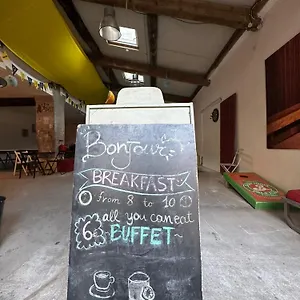 Bonjour
BREAKFAST
from 8 to 10
all you can eat
6€ BUFFET